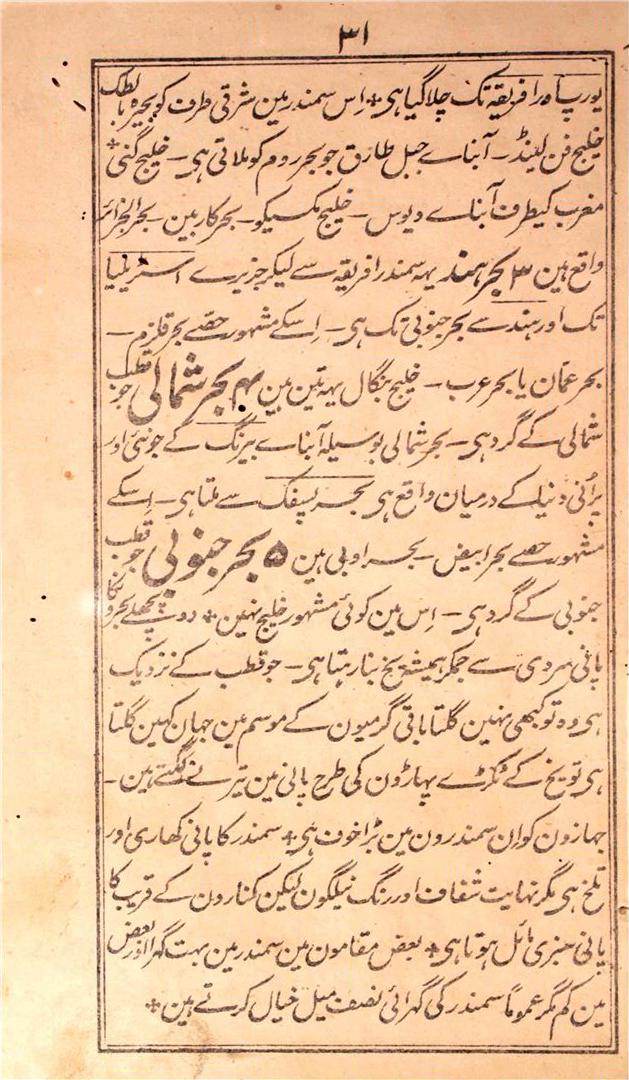 ۳۱
یورپ اور افریقہ تک چلا گیا ہی ٭ اِس سمندر مین شرقی طرف کو بحیرہ بالطک
خلیج فن لینڈ ۔ آبناے جبل طارق جو بحر روم کو ملاتی ہی ۔ خلیج گنی ٭
مغرب کیطرف آبناے دیوس ۔ خلیج مکسیکو ۔ بحر کاربین ۔ بحر الجزائر
واقع ہین ۳ بحر ہند یہہ سمندر افریقہ سے لیکر جزیرے اسٹریلیا
تک اور ہند سے بحر جنوبی تک ہی ۔ اِسکے مشہور حصے بحر قلزم ۔
بحر عمّان یا بحر عرب ۔ خلیج بنگال یہہ تین ہین ۴ بحر شمالی جو قطب
شمالی کے گرد ہی ۔ بحر شمالی بوسیلہ آبناے بیرنگ کے جو نئی اور
پرانی دنیا کے درمیان واقع ہی بحر پسفک سے ملتا ہی ۔ اِسکے
مشہور حصے بحر ابیض ۔ بحر اوبی ہین ۵ بحر جنوبی جو قطب
جنوبی کے گرد ہی ۔ اِس مین کوئی مشہور خلیج نہین ٭ دو پچھلے بحرونکا
پانی سردی سے جمکر ہمیشہ یخ بنا رہتا ہی ۔ جو قطب کے نزدیک
ہی وہ تو کبھی نہین گلتا باقی گرمیون کے موسم مین جہان کہین گلتا
ہی تو یخ کے ٹکڑے پہاڑون کی طرح پانی مین تیرنے لگتے ہین ۔
جہازون کو اِن سمندرون مین بڑا خوف ہی ٭ سمندر کا پانی کھاری اور
تلخ ہی مگر نہایت شفاف اور رنگ نیلگون لیکن کنارون کے قریب کا
پانی سبزی مائل ہوتا ہی ٭ بعض مقامون مین سمندر مین بہت گہرا اور بعض
مین کم مگر عموماً سمندر کی گہرائی نصف میل خیال کرتے ہین ٭